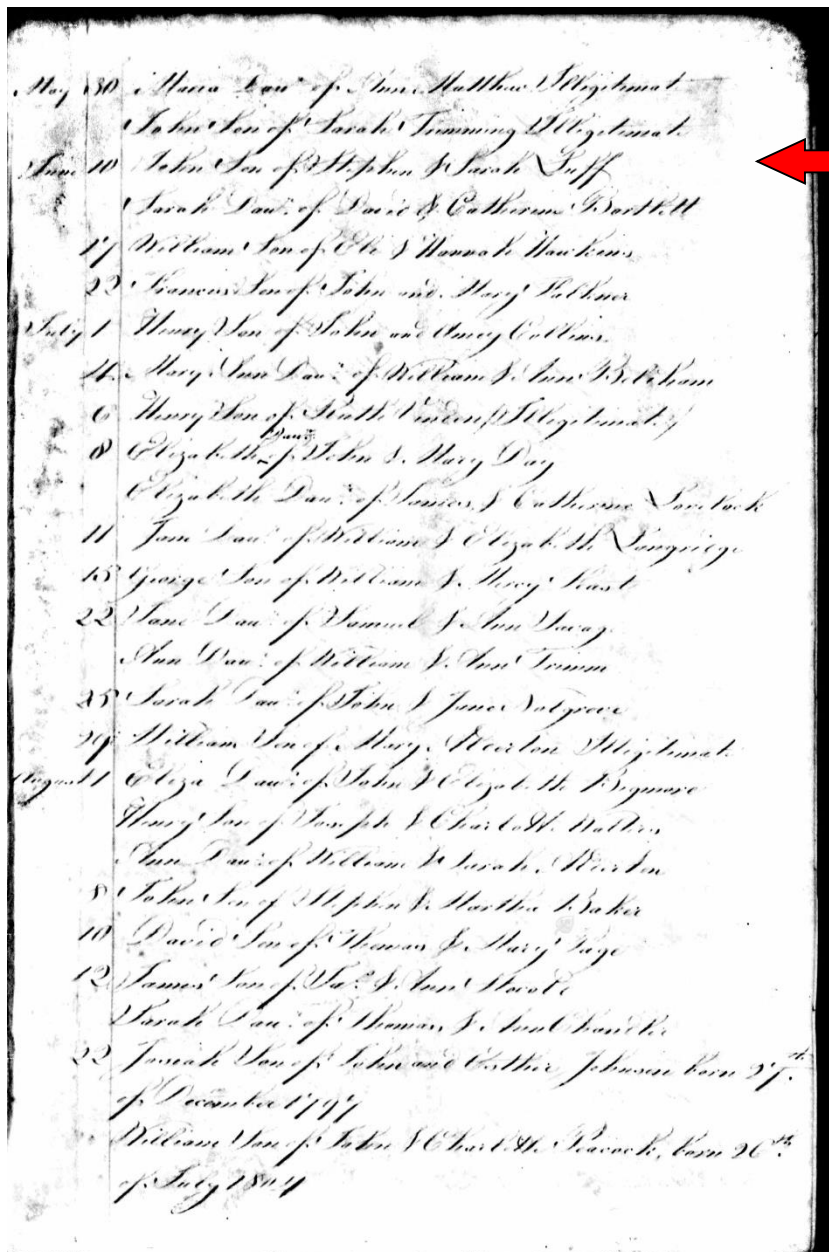 May 30 Maria Dau.r of Ann Matthew Illegitimate
John Son of Sarah Trimming Illegitimate
June 10 John Son of Stephen & Sarah Luff
Sarah Dau.r of David & Catherine Bartlett
17 William Son of Eli & Hannah Hawkins
22 Francis Son of John and Mary Falkner
July 1 Henry Son of John and Amey Collins
4 Mary Ann Dau.r of William & Ann
6 Henry Son of Ruth Illegitimate
8 Elizabeth Dau.r of John & Mary Day
Elizabeth Dau.r of James & Catherine Lovelock
11 Jane Dau.r of William & Elizabeth Longridge
15 George Son of William & Mercy
22 Jane Dau.r of Samuel & Ann Savage
Ann Dau.r of William & Ann Trimm
25 Sarah Dau.r of John & Jane
29 William Son of Mary Illegitimate
August 1 Eliza Dau.r of John & Elizabeth Bigmore
Henry Son of Joseph & Charlotte Walters
Ann Dau.r of William & Sarah
8 John Son of Stephen & Martha Baker
10 David Son of Thomas & Mary Page
12 James Son of Ja.s & Ann
Sarah Dau.r of Thomas & Ann Chandler
22 Josiah Son of John and Esther Johnson born 27th
of December 1797
William Son of John & Charlotte Peacock, born 26th
of July 1804